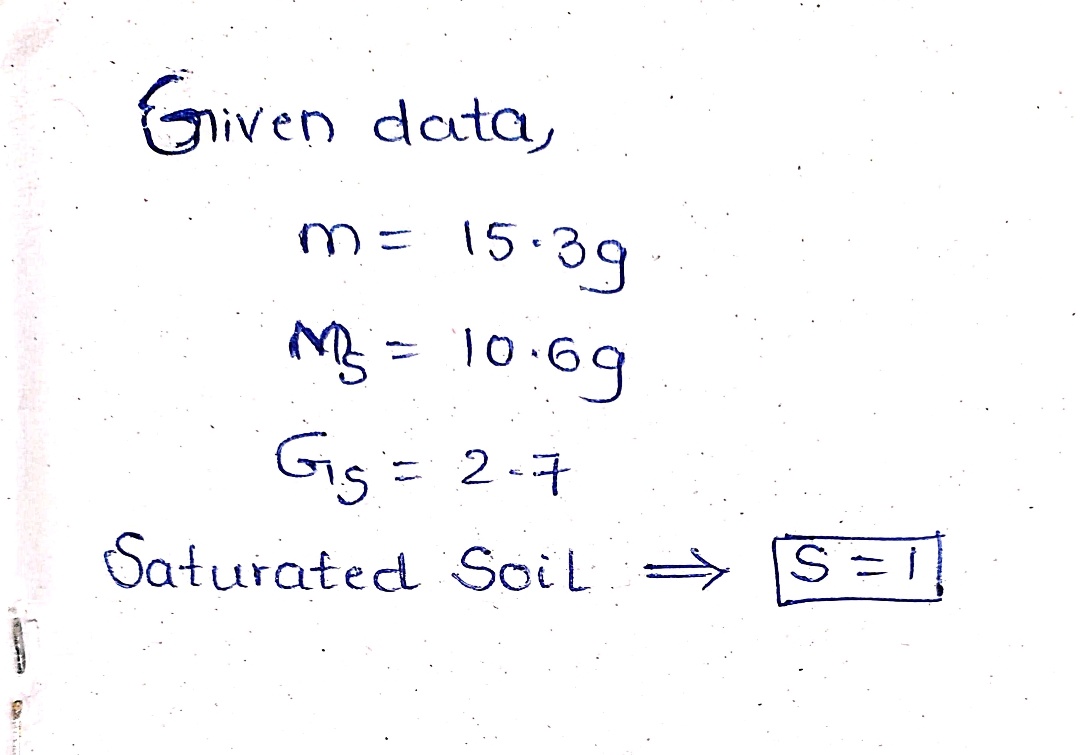 Given data,
m = 15.3g
Ms = 10.6g
Gs = 2.7
Saturated Soil ⇒ S = 1